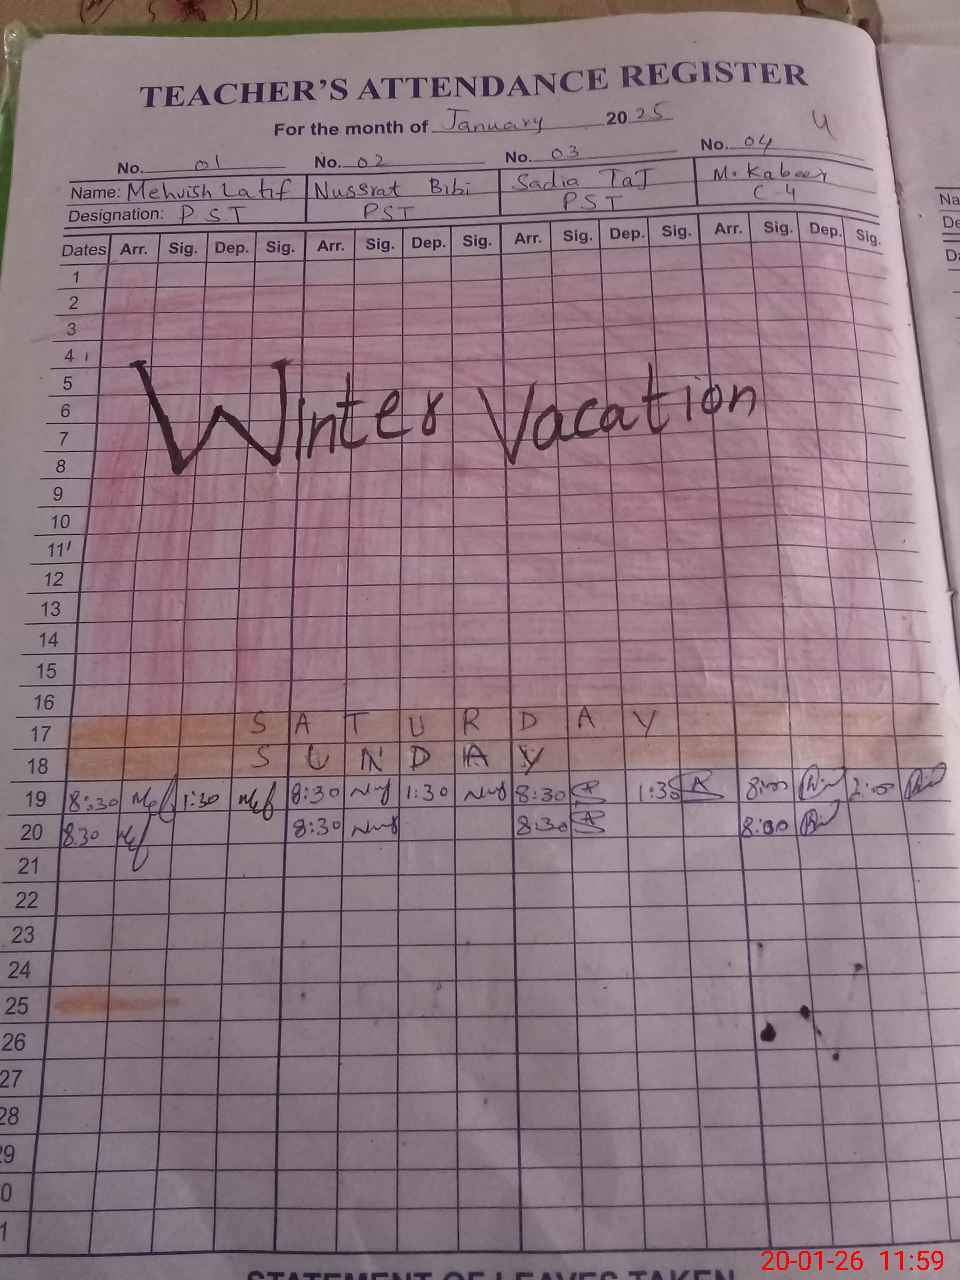 TEACHER'S ATTENDANCE REGISTER
For the month of January 2025
No. 01 No. 02 No. 03 No. 04
Name: Mehvish Latif Nussrat Bibi Sadia Taj M. Kabeer
Designation: PST PST PST C 4
Dates Arr. Sig. Dep. Sig. Arr. Sig. Dep. Sig. Arr. Sig. Dep. Sig. Arr. Sig. Dep. Sig.
1
2
3
4
5
6
7
8
Winter Vacation
9
10
11
12
13
14
15
16
17 SATURDAY
18 SUNDAY
19 8:30 1:30 8:30 1:30 8:30 1:30 8:00 2:00
20 8:30 8:30 8:30 8:00
21
22
23
24
25
26
27
28
29
0
1
STATEMENT OF LEAVES TAKEN
Na
De
Da
20-01-26 11:59